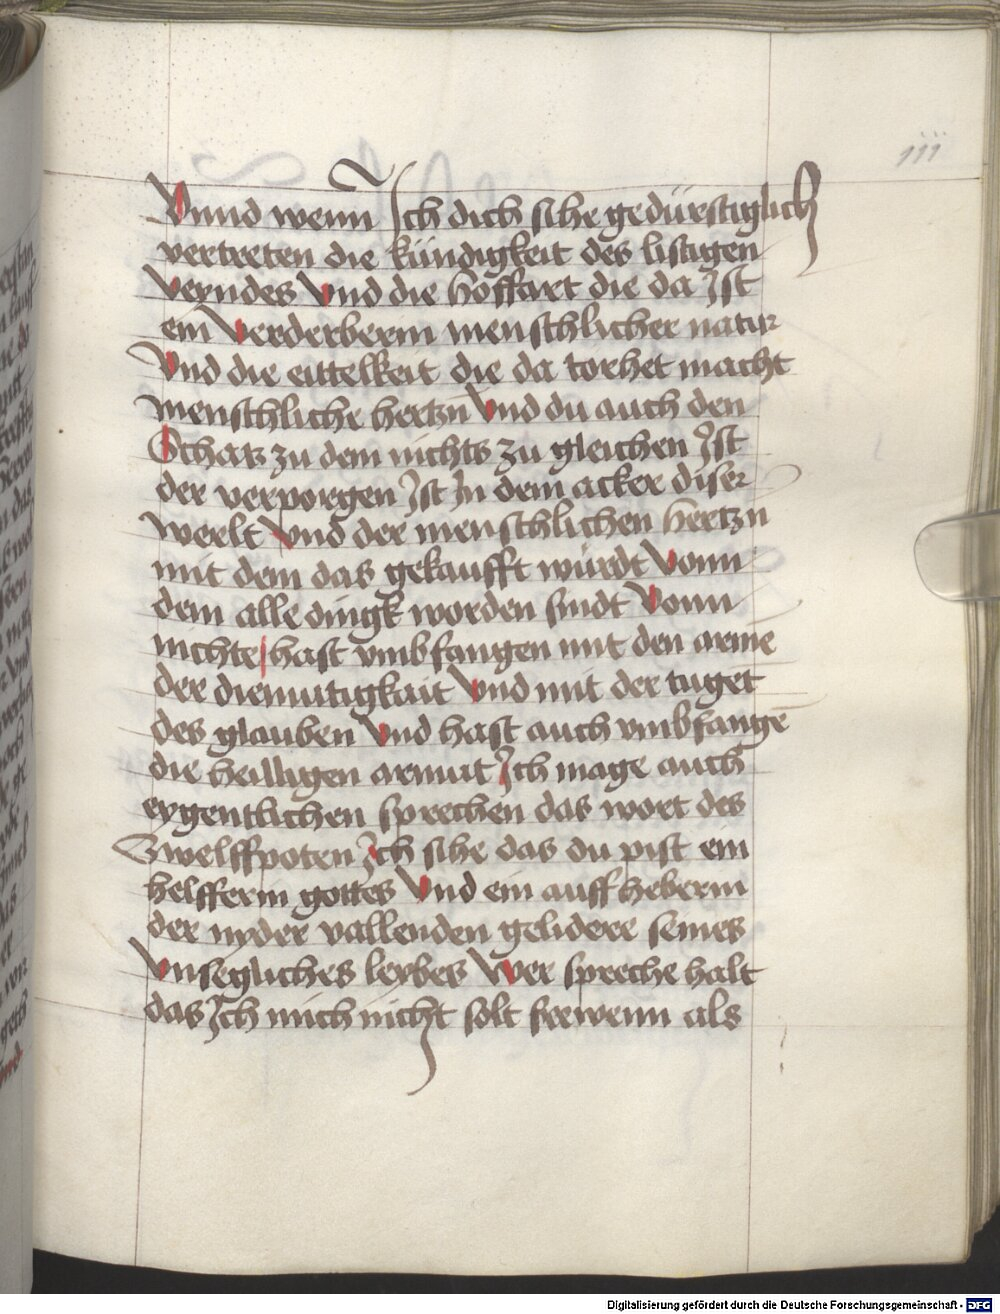 111
Vnnd wenn Ich dich sihe gedürstiglich
vertreten die kündigkeit des listigen
veyndes Vnd die hoffart die da Ist
ein Verderberin menschlicher natur
Vnd die eittelkeit die da torhet macht
menschliche hertzn Vnd du auch den
Schatz zu dem nichts zu gleichen Ist
der verporgen Ist In dem acker diser
werlt Vnd der menschlichen hertzn
mit dem das gekaufft würdt Vonn
dem alle dingk worden sindt Vonn
nichte hast vmbfangen mit den arme
der diemutigkait Vnd mit der tuget
des glauben Vnd hast auch vmbfange
die heilligen armut Ich mage auch
eygentlichen sprechen das wort des
Zwelffpoten Ich sihe das du pist ein
helfferin gottes Vnd ein auffheberin
der nyder vallenden gelidere seines
Vnsegliches leybes Wer spreche halt
das Ich mich nicht solt frewenn als
Digitalisierung gefördert durch die Deutsche Forschungsgemeinschaft - DFG